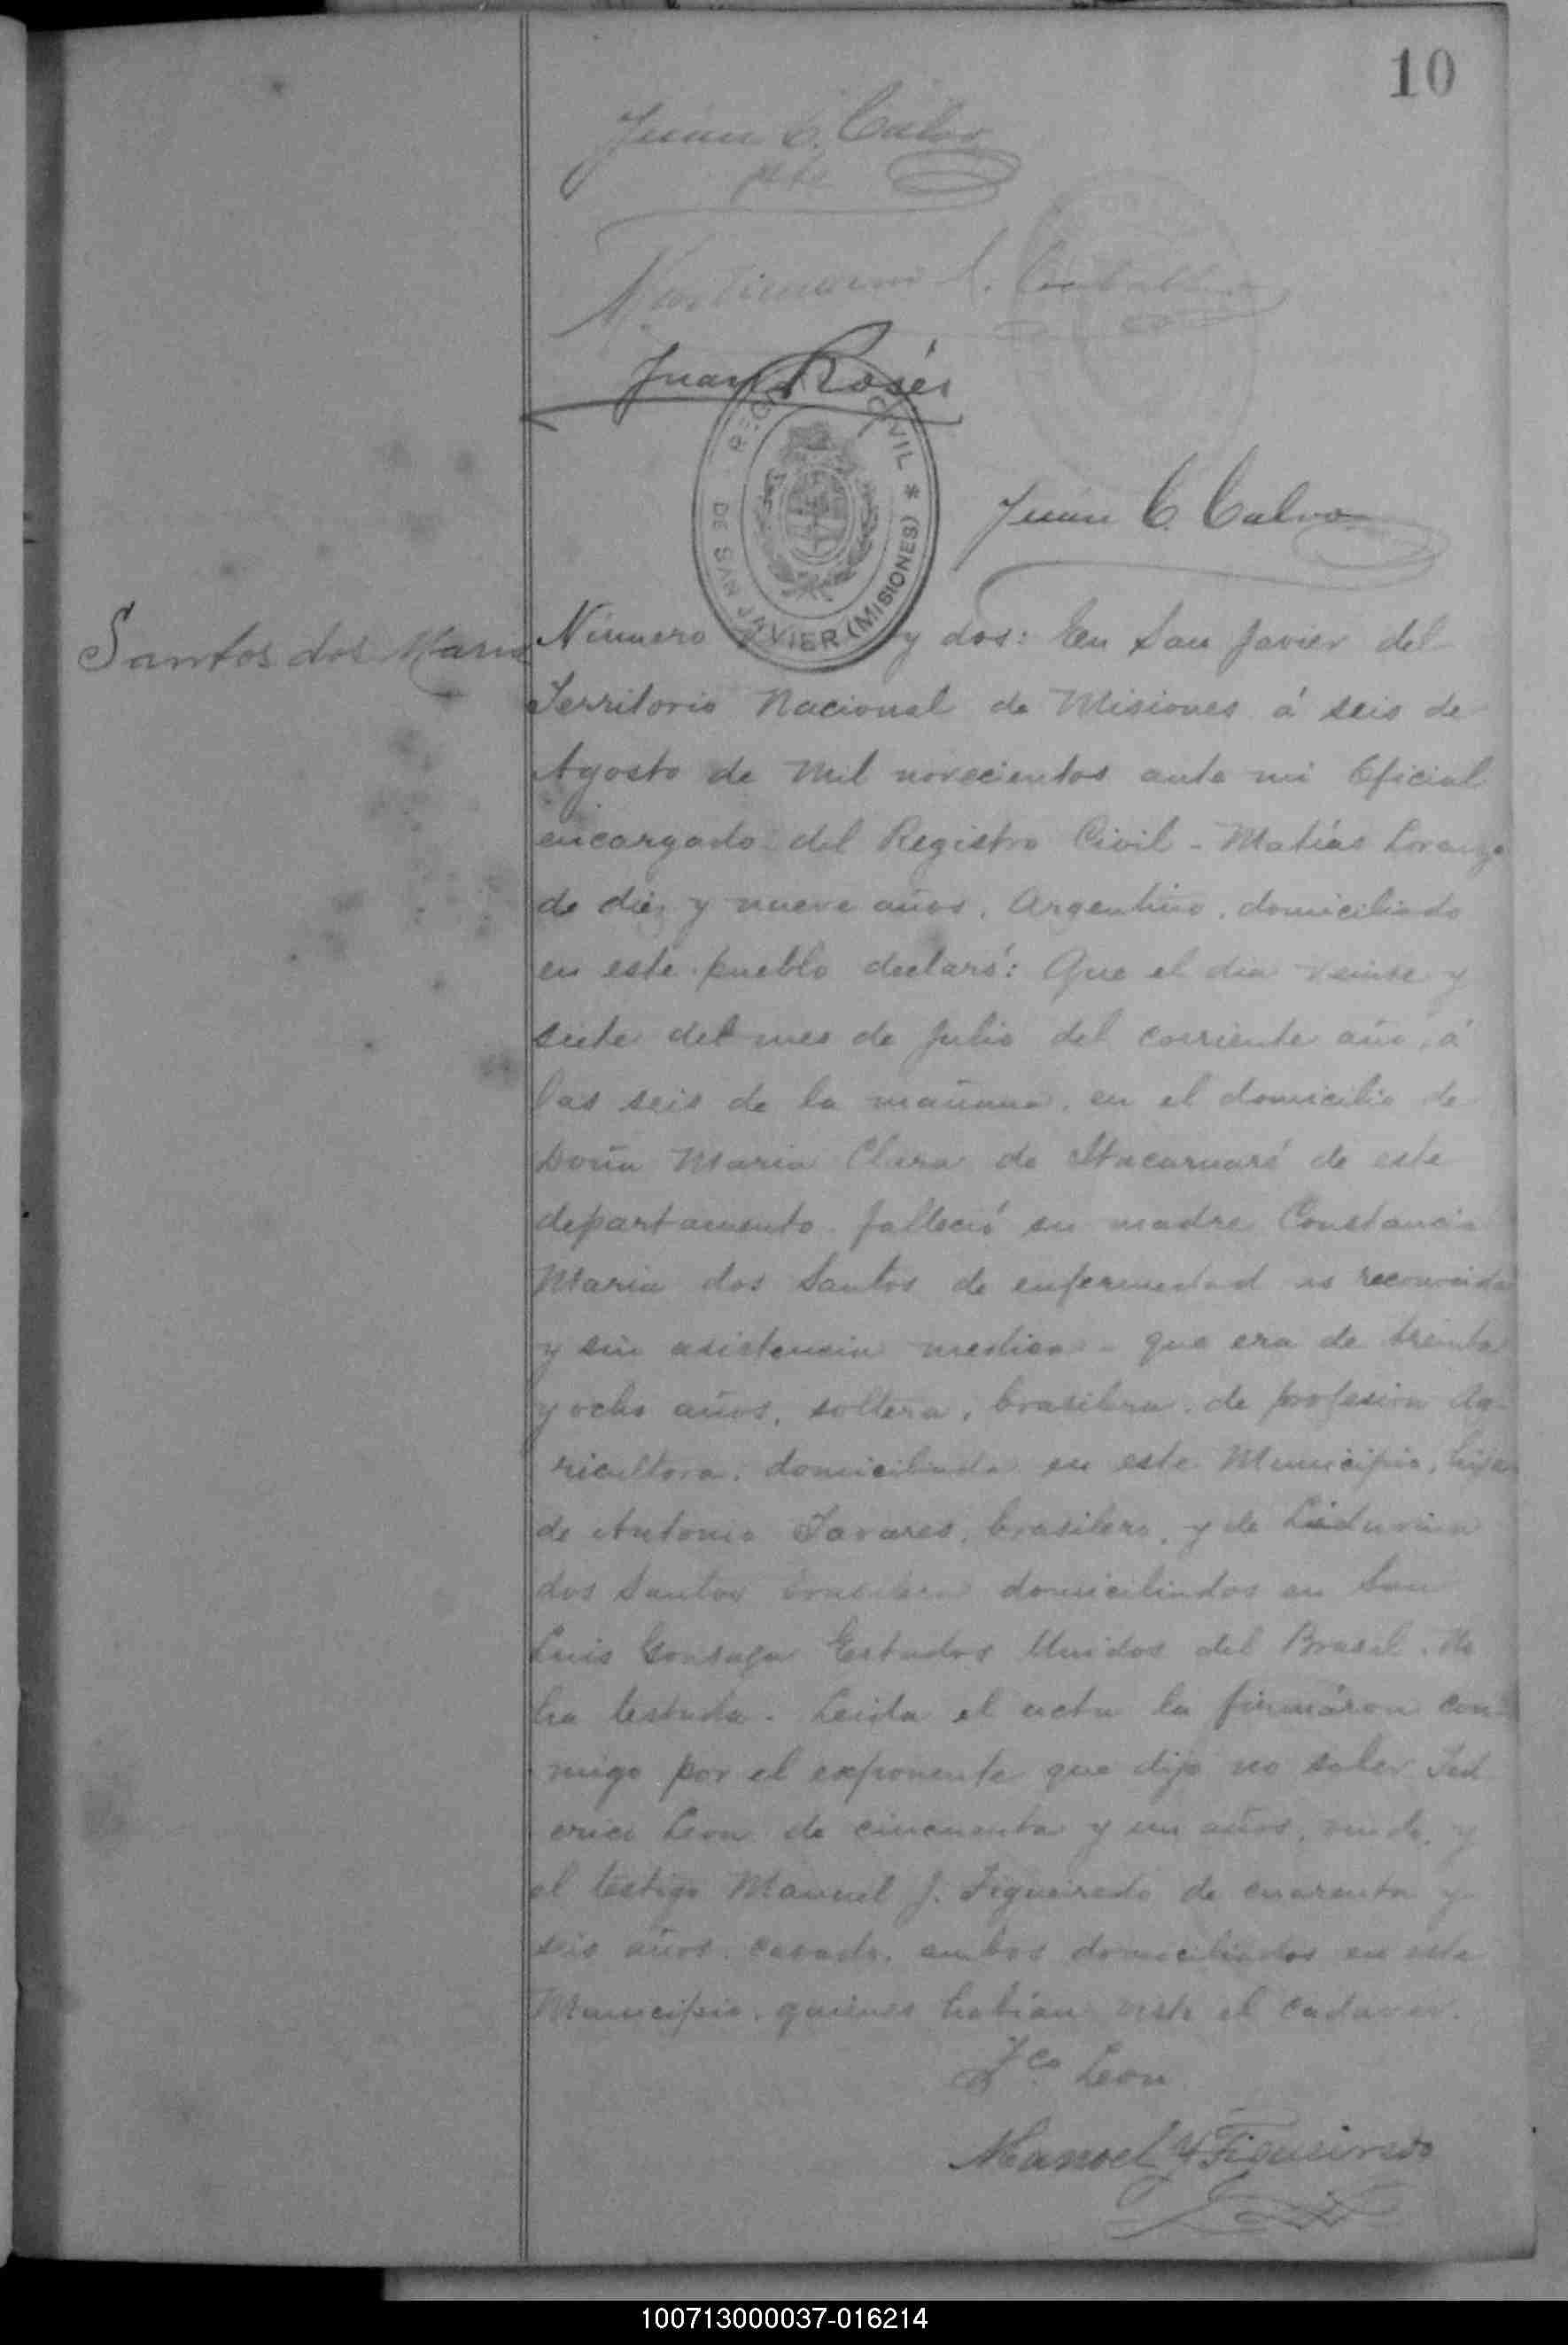 10
Juan C. Calvo
pte
Juan Rosés
REGISTRO CIVIL * DE SAN JAVIER (MISIONES)
Juan C. Calvo
Santos dos Maria
Número y dos: En San Javier del
Territorio Nacional de Misiones á seis de
Agosto de mil novecientos ante mi Oficial
encargado del Registro Civil - Matías Lorenzo
de diez y nueve años, Argentino, domiciliado
en este pueblo declaró: Que el dia veinte y
siete del mes de Julio del corriente año, á
las seis de la mañana, en el domicilio de
Doña Maria Clara de Itacaruaré de este
departamento falleció su madre Constancia
Maria dos Santos de enfermedad no reconocida
y sin asistencia medica - que era de treinta
y ocho años, soltera, brasilera, de profesion Ag-
ricultora, domiciliada en este Municipio, hija
de Antonio Tavares, brasilero, y de
dos Santos brasilera domiciliados en San
Luis Gonsaga Estados Unidos del Brasil. No
ha testado. Leida el acta la firmáron con-
migo por el exponente que dijo no saber Fed
erico Leon de cincuenta y un años, viudo, y
el testigo Manuel J. Figueiredo de cuarenta y
seis años, casado, ambos domiciliados en este
Municipio, quienes habían visto el cadaver.
Fco Leon
Manoel J Figueiredo
100713000037-016214